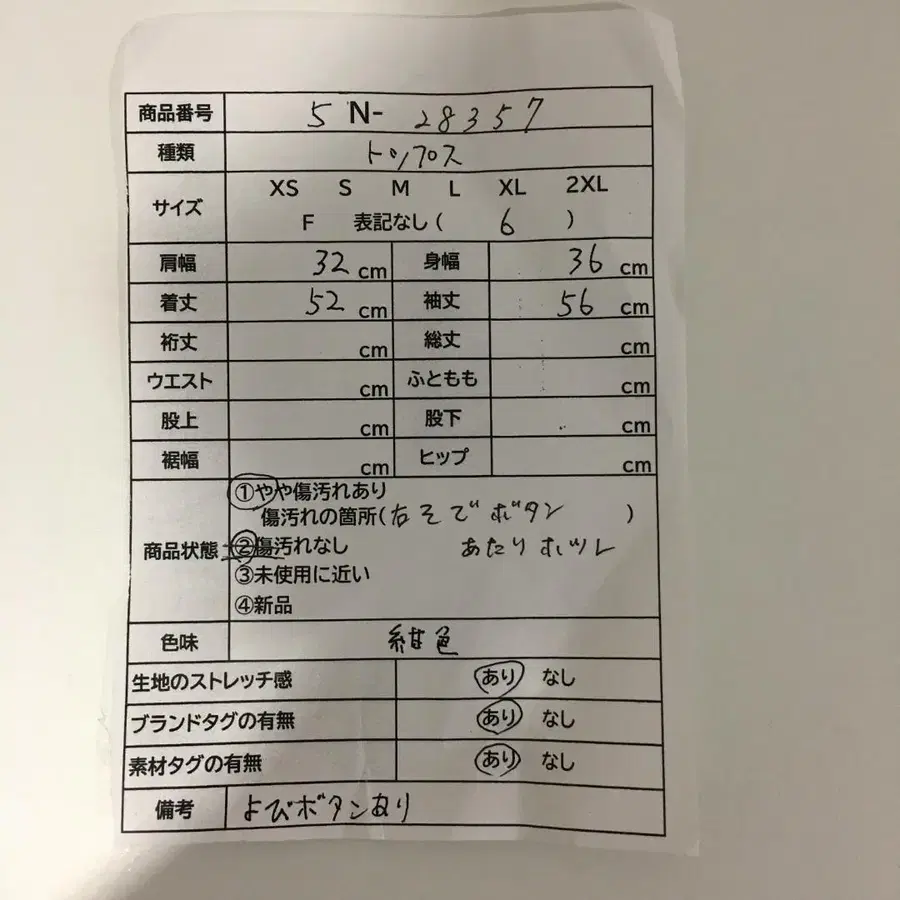 商品番号 5 N- 28357
種類 トップス
サイズ XS S M L XL 2XL
F 表記なし( 6 )
肩幅 32 cm 身幅 36 cm
着丈 52 cm 袖丈 56 cm
裄丈 cm 総丈 cm
ウエスト cm ふともも cm
股上 cm 股下 cm
裾幅 cm ヒップ cm
商品状態 ①やや傷汚れあり
傷汚れの箇所(右そでボタン )
②傷汚れなし あたりホツレ
③未使用に近い
④新品
色味 紺色
生地のストレッチ感 あり なし
ブランドタグの有無 あり なし
素材タグの有無 あり なし
備考 よびボタンあり